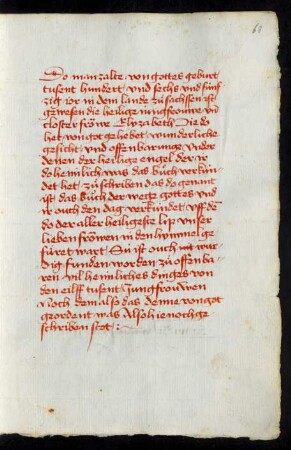 60
Do man zalte von gottes geburt
tusent hundert und sechs und fünf
zig ior in dem lande zu sachssen ist
gewesen die heilige iungfrouwe und
closter fröwe Elyzabeth Die do
het von got gehebet wunderliche
gesicht und offenbarunge under
denen der heilige engel der ir
do heimlich was das buch verkün
det het zu schriben das do genant
ist das Buch der wege gottes und
ir ouch den dag verkündet uff den
do der aller heiligeste lip unser
lieben fröwen in den hymmel ge
füret wart Sü ist ouch mit wür
dig funden worden zu offenba
ren vil heimliches dinges von
den eilff tusent Jungfrouwen
Noch dem also das denne von got
geordent was Also hie noch ge
schriben stet :